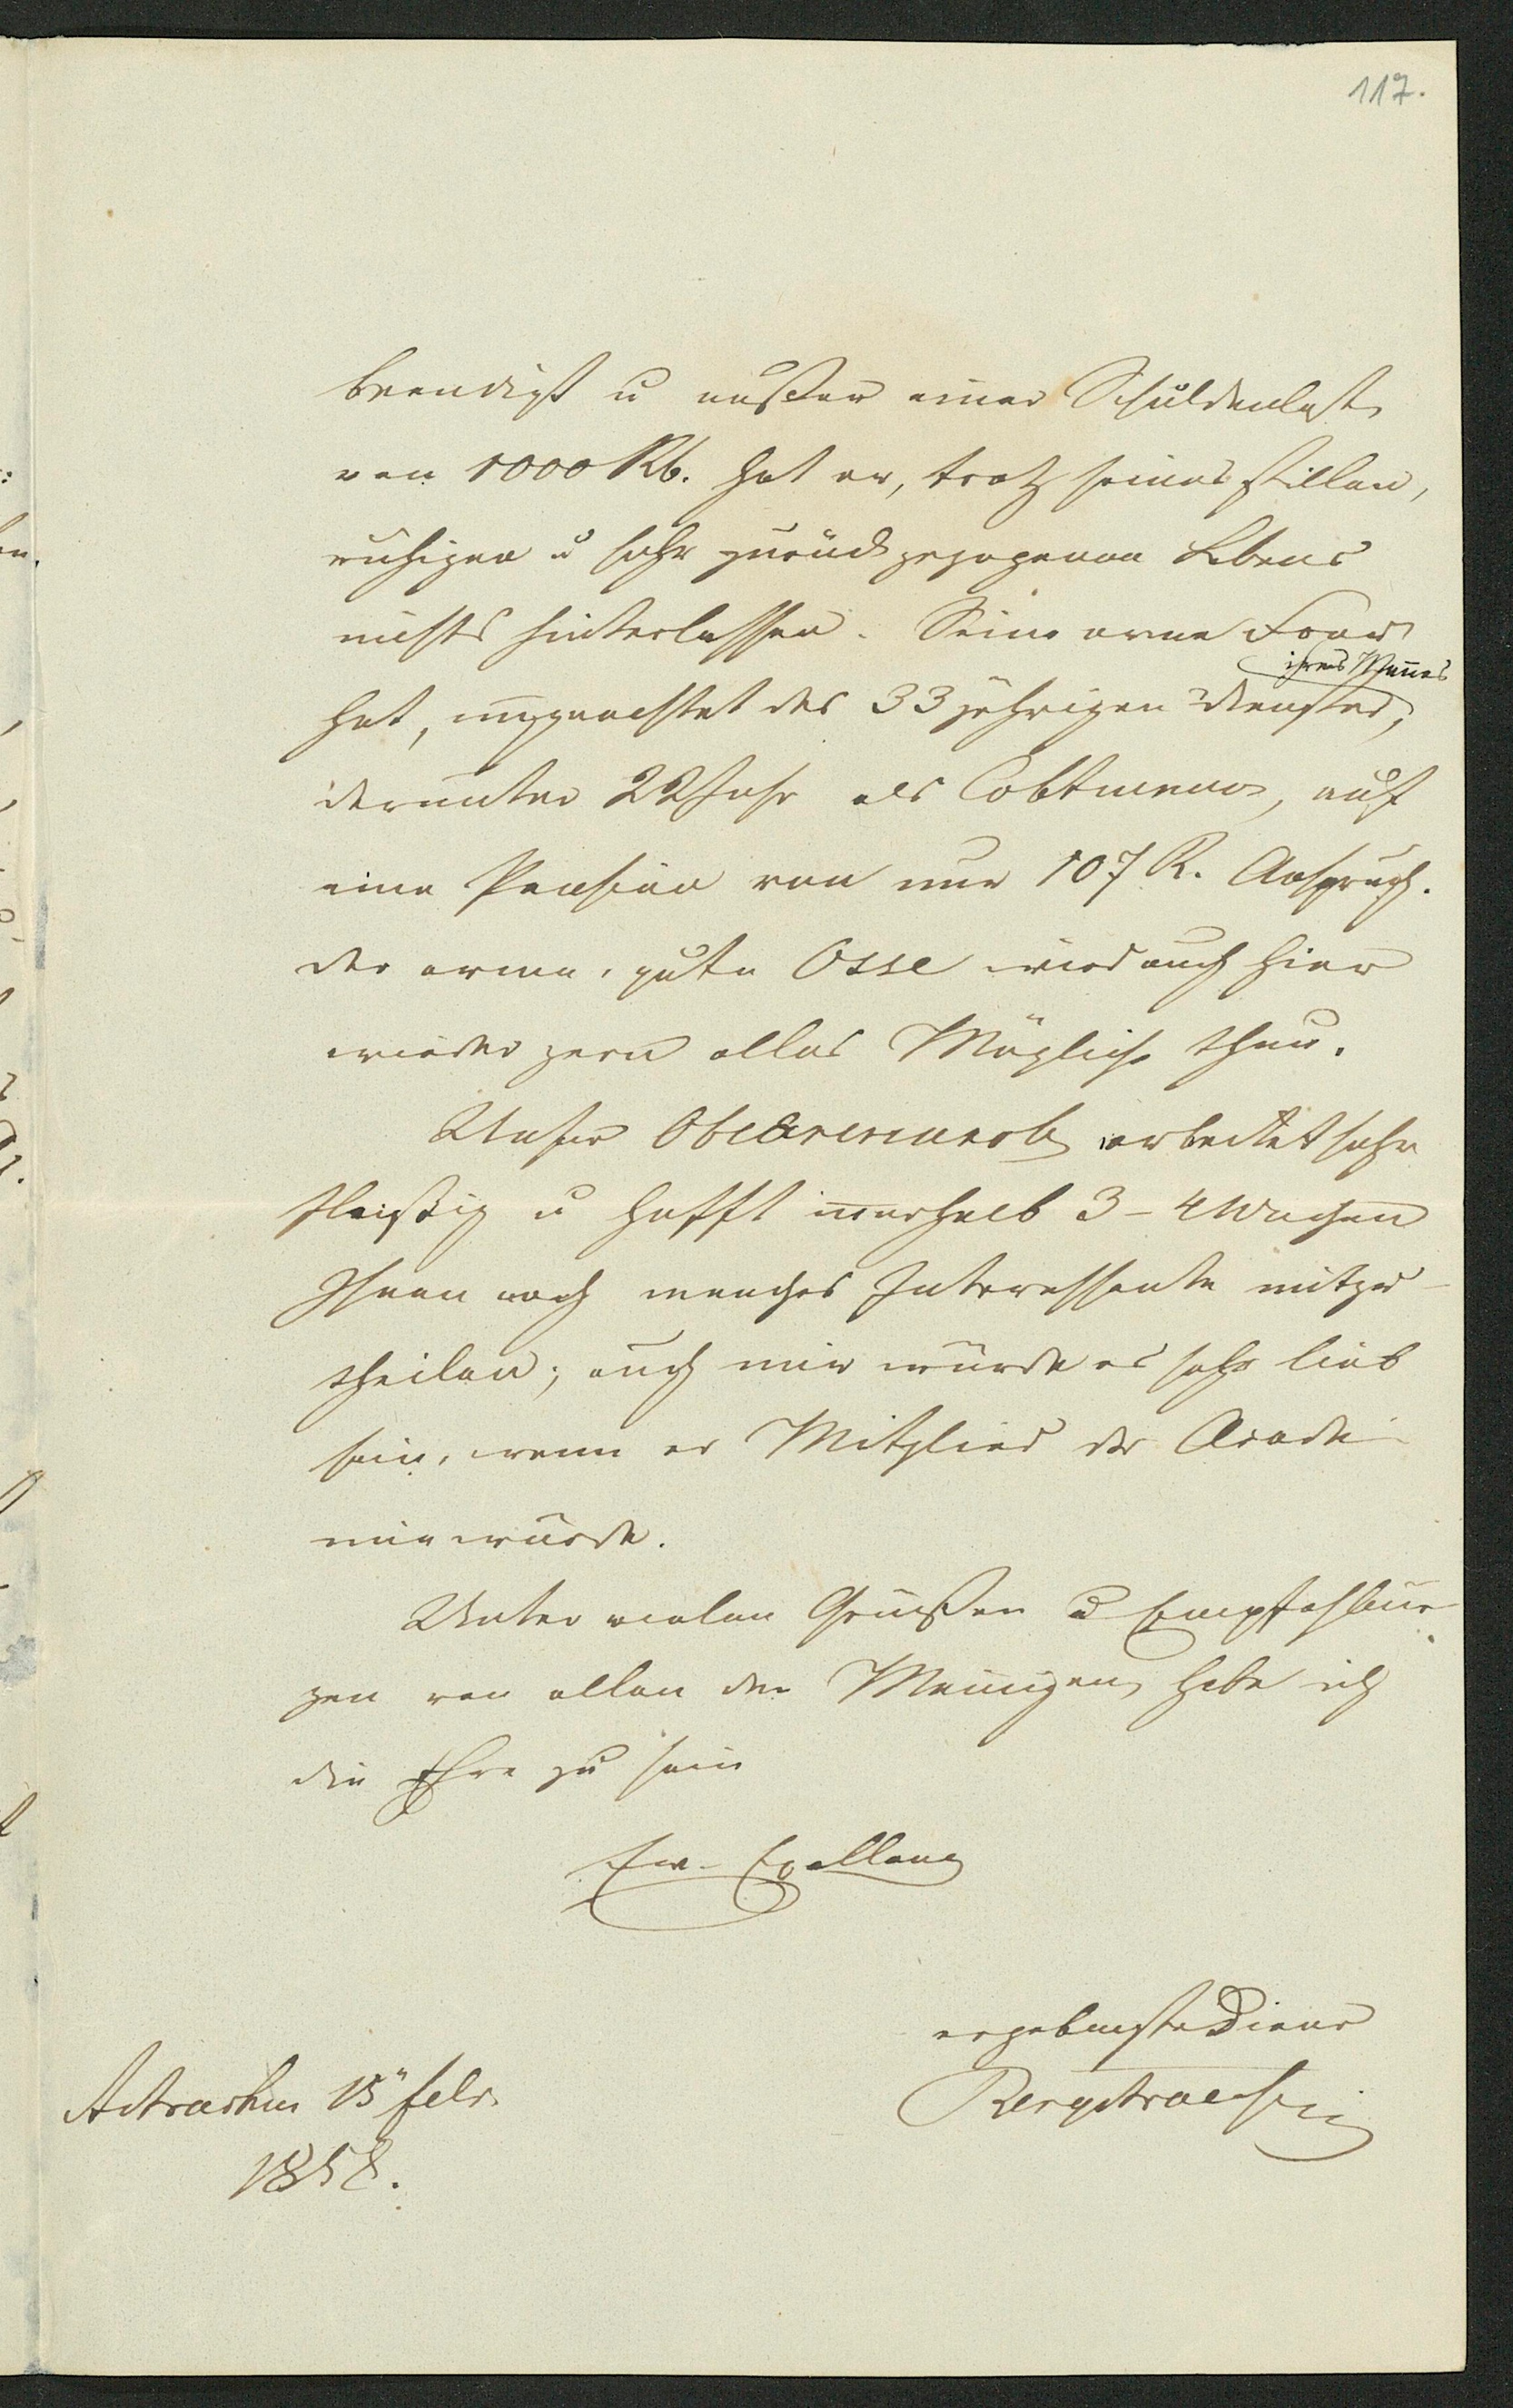 117.
beendigt u außer einer Schuldenlast
von 1000 Rb. hat er, trotz seines stillen,
ruhigen u sehr zurückgezogenen Lebens
nichts hinterlassen. Seine arme Frau
ihres Mannes
hat, ungeachtet des 33 jährigen Dienstes,
darunter 22 Jahr als, auf
eine Pension von nur 107 R. Anspruch.
der arme, gute Osse wird auch hier
wieder gern alles Mögliche thun.
Unser arbeitet sehr
fleißig u hofft innerhalb 3-4 Wochen
Ihnen noch manches Interessante mitzu-
theilen; auch mir würde es sehr lieb
sein, wenn er Mitglied der Acade-
mie würde.
Unter vielen Grüßen u Empfehlun-
gen von allen den Meinigen, habe ich
die Ehre zu sein
Ew. Excellenz
ergebenster Diener
Bergstraesser
Astrachan 15" Febr.
1858.